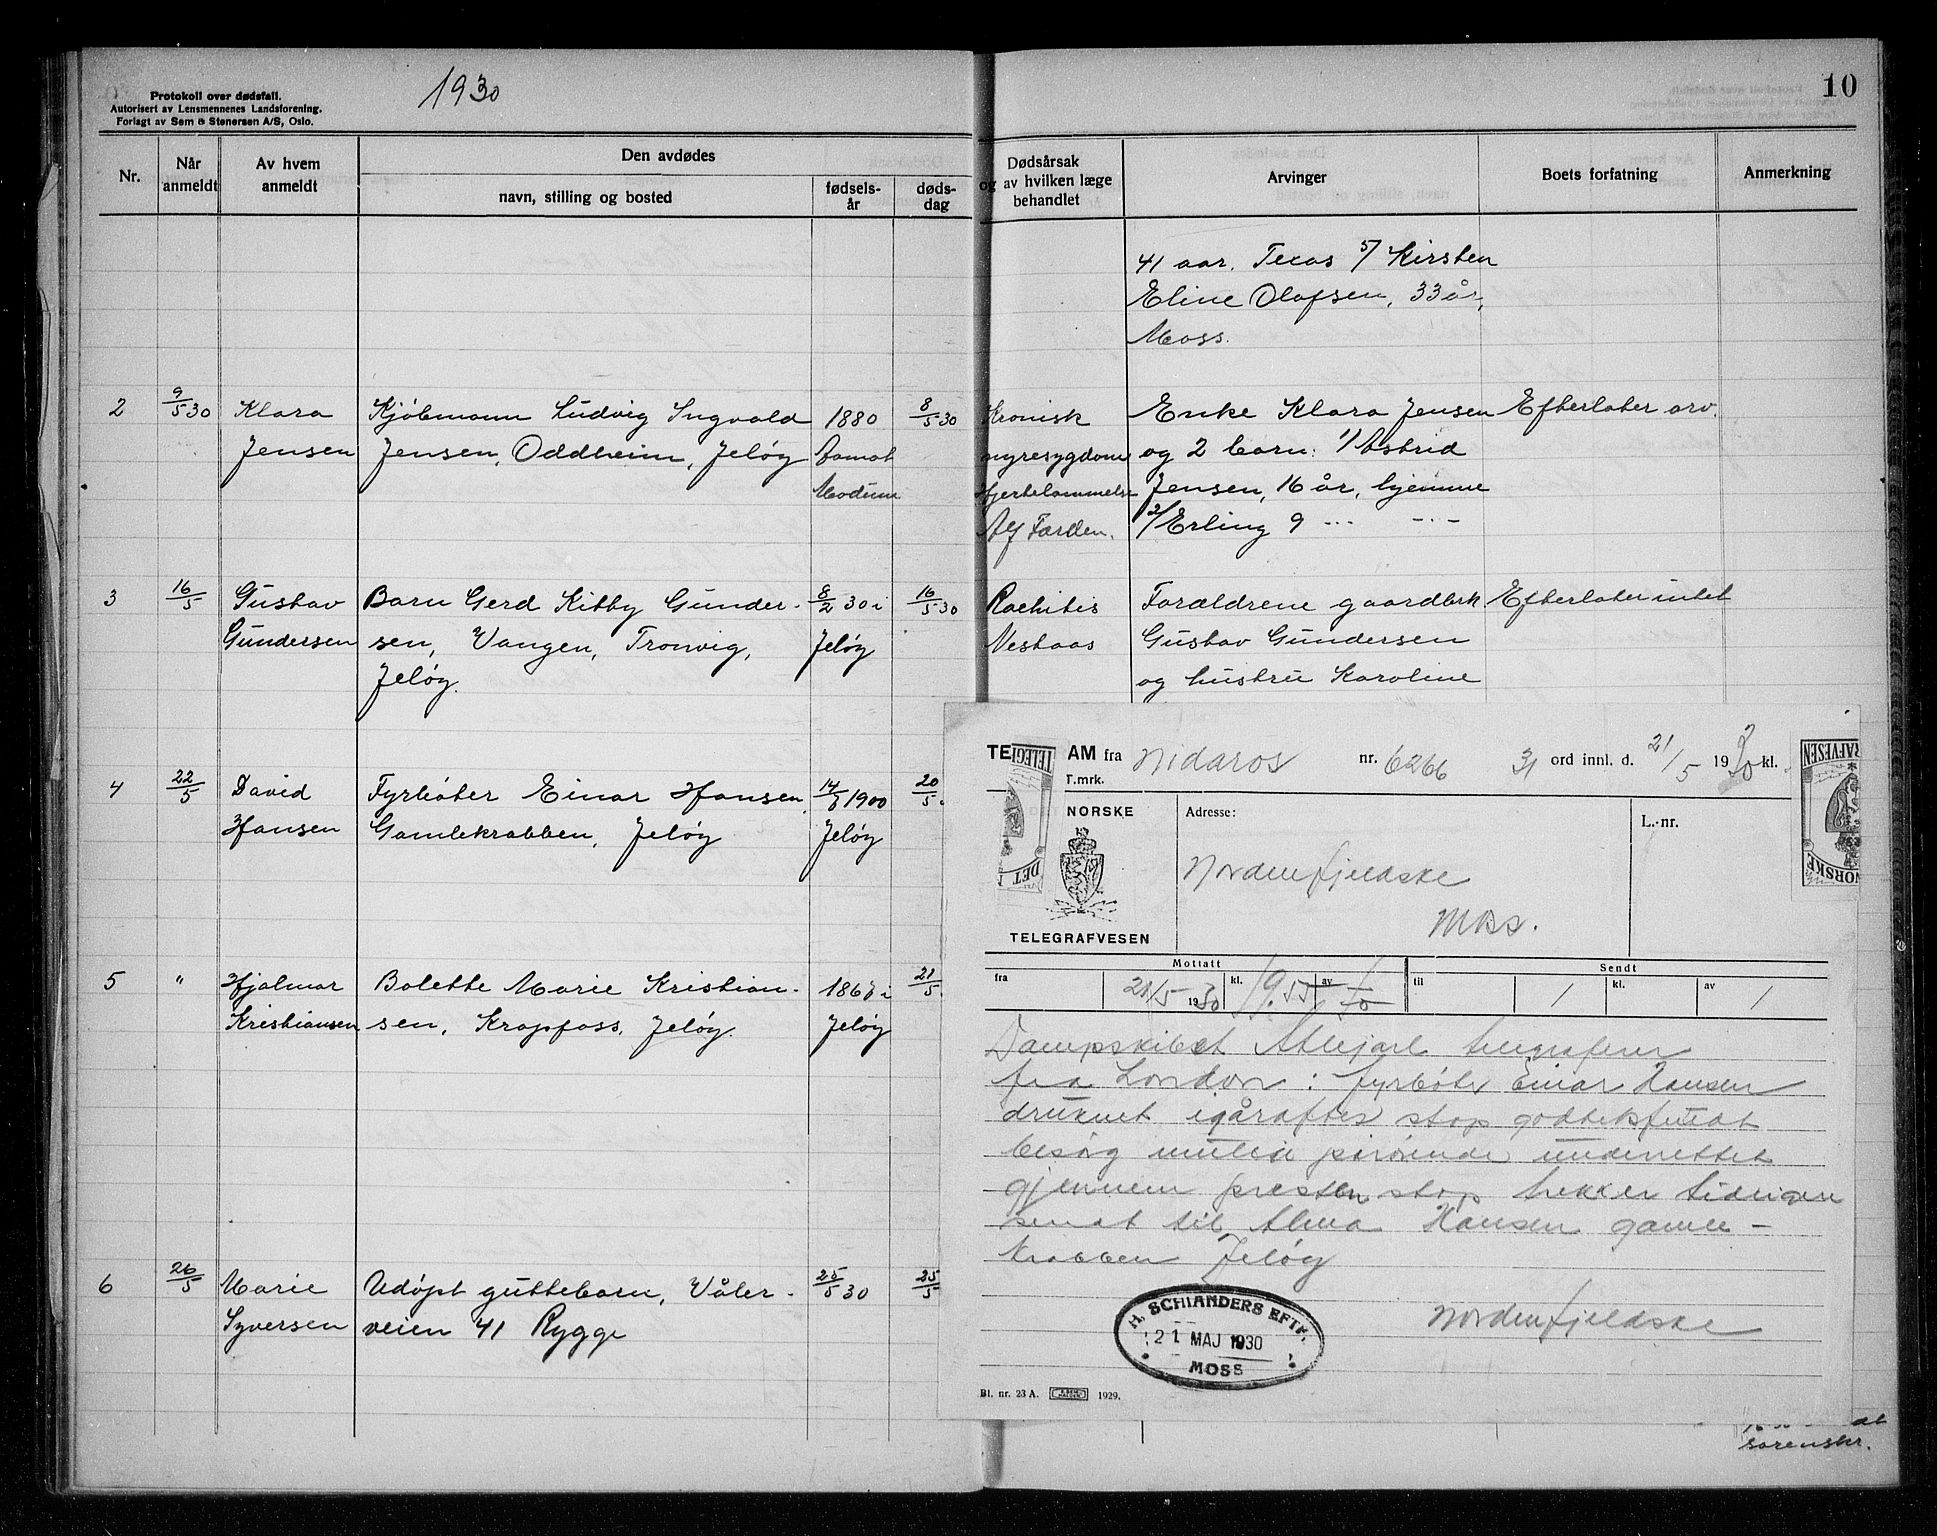 Protokoll over dødsfall.
Autorisert av Lensmennenes Landsforening.
Forlagt av Sem & Stenersen A/S, Oslo.
1930
10
Nr.
Når anmeldt
Av hvem anmeldt
Den avdødes
navn, stilling og bosted
fødsels-år
døds-dag
Dødsårsak og av hvilken læge behandlet
Arvinger
Boets forfatning
Anmerkning
41 aar. Texas 5/ Kirsten
Eline Olafsen, 33 år,
Moss.
2
9/5 30
Klara
Jensen
Kjøbmann Ludvig Ingvald
Jensen, Oddheim, Jeløy
1880
Aamot
Modum
8/5 30
Kronisk
nyresygdom
Hjertelammelse
Alf Farden.
Enke Klara Jensen
og 2 barn: 1/ Astrid
Jensen, 16 år, hjemme
2/ Erling 9 --- ---
Efterlater arv.
3
16/5
Gustav
Gundersen
Barn Gerd Kitty Gunder-
sen, Vangen, Tronvig,
Jeløy.
8/2 30 i
Jeløy
16/5 30
Rachitis
Nestaas
Forældrene gaardbrk
Gustav Gundersen
og hustru Karoline
Efterlater intet
4
22/5
David
Hansen
Fyrbøter Einar Hansen
Gamlekrabben, Jeløy
1900
Jeløy
20/5
5
"
Hjalmar
Kristiansen
Bolette Marie Kristian-
sen, Krapfoss, Jeløy.
1867 i
Jeløy
21/5
6
26/5
Marie
Syversen
Udøpt guttebarn, Våler-
veien 41 Rygge
25/5 30
25/5
TELEG AM fra Nidaros nr. 6266 31 ord innl. d. 21/5 1930 kl.
T.mrk.
NORSKE
TELEGRAFVESEN
Adresse:
L.-nr.
Nordenfjeldske
Moss.
Mottatt
Sendt
fra 21/5 1930 kl. 19.55 av
til kl. av
Dampskibet Atlejarl telegraferer
fra London: fyrbøter Einar Hansen
druknet igåraftes stop godtbekfundt
besørg mulig pårørende underrettet
gjennem presten stop trekker tidligere
sendt til Alma Hansen gamle-
krabben Jeløy
Nordenfjeldske
H. SCHIANDERS EFTF.
21 MAJ 1930
MOSS
Bl. nr. 23 A. 1929.
sorenskr.